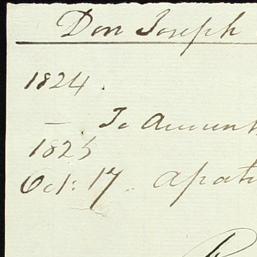 Don Joseph
1824.
— . To Amount
1825
Oct: 17.